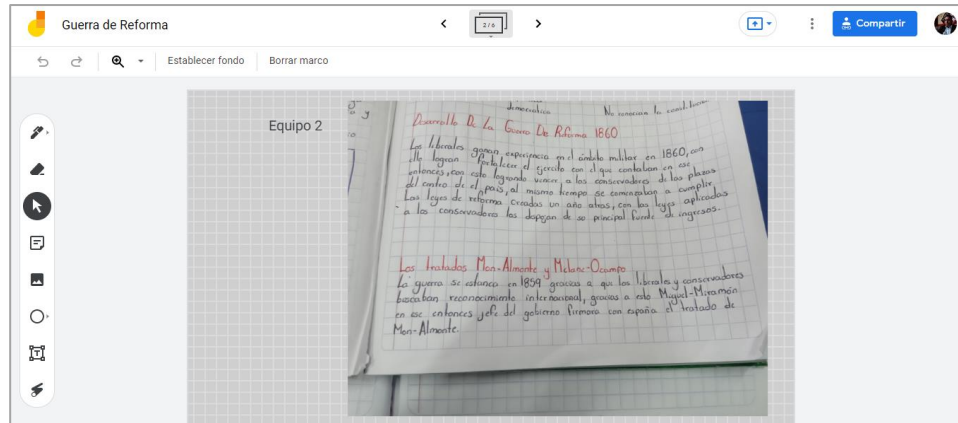 Guerra de Reforma
2/6
Compartir
Establecer fondo
Borrar marco
Equipo 2
democratica
No conocian la
y
Desarrollo De La Guerra De Reforma 1860
Los liberales ganan experiencia en el ambito militar en 1860, con
ello logran fortalecer el ejercito con el que contaban en ese
entonces, con esto logrando vencer a los conservadores de las plazas
del centro de el país, al mismo tiempo se comenzaban a cumplir
Las leyes de reforma creadas un año atras, con las leyes aplicadas
a los conservadores los dejan de su principal fuente de ingresos.
Los tratados Mon-Almonte y Mclane-Ocampo
La guerra se estanca en 1859 gracias a que los liberales y conservadores
buscaban reconocimiento internacional, gracias a esto Miguel-Miramón
en ese entonces jefe del gobierno firmora con españa el tratado de
Mon-Almonte.